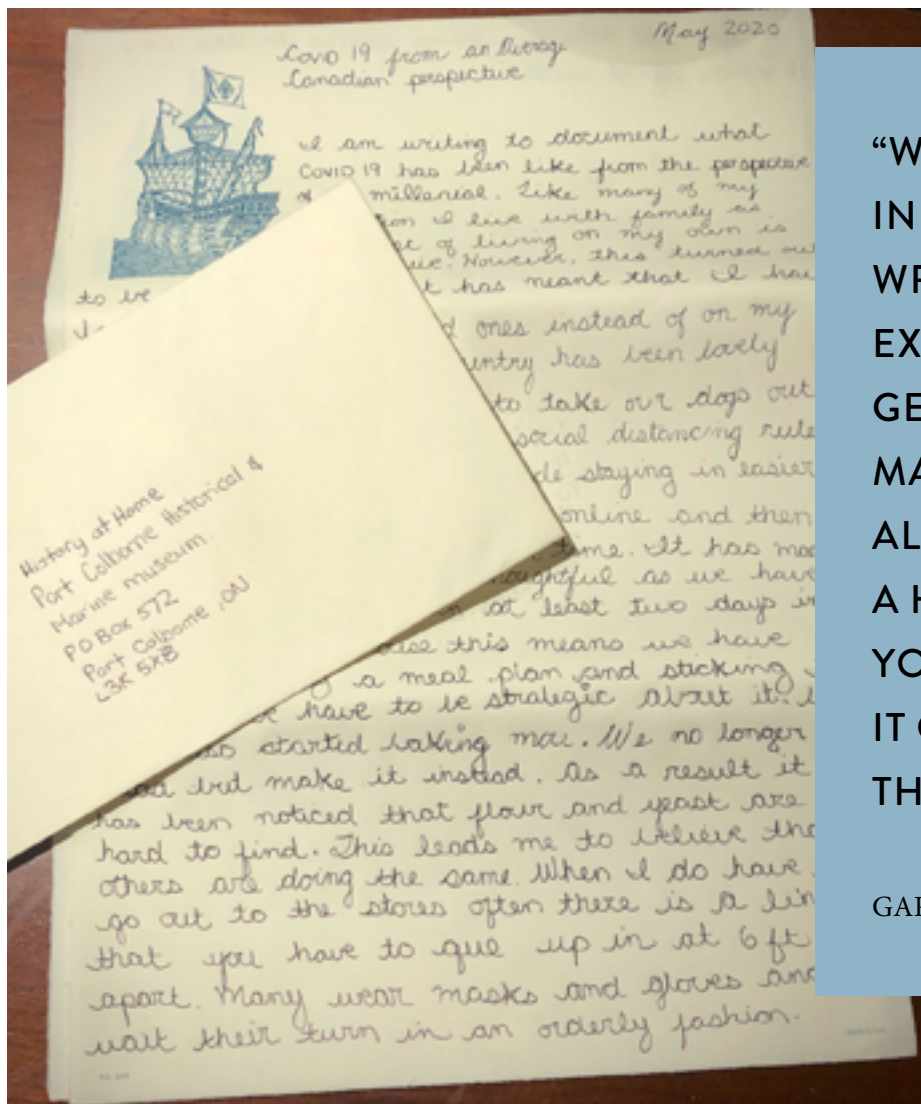 May 2020
Covid 19 from an Average
Canadian perspective
I am writing to document what
Covid 19 has been like from the perspective
of millenial. Like many of my
I live with family as
of living on my own is
However, this turned
to be it has meant that I
ones instead of on my
has been lovely
to take our dogs out
social distancing
staying in easier
online and then
time. It has
as we have
at least two days
this means we have
a meal plan and sticking
have to be strategic about it.
started baking more. We no longer
but make it instead. As a result it
has been noticed that flour and yeast are
hard to find. This leads me to believe
others are doing the same. When I do have
go out to the stores often there is a
that you have to que up in at 6 ft
apart. Many wear masks and gloves and
wait their turn in an orderly fashion.
History at Home
Port Colborne Historical &
Marine museum.
PO Box 572
Port Colborne, ON
L3K 5X8
“W
IN
WR
EX
GE
MA
AL
A H
YO
IT
TH
GA